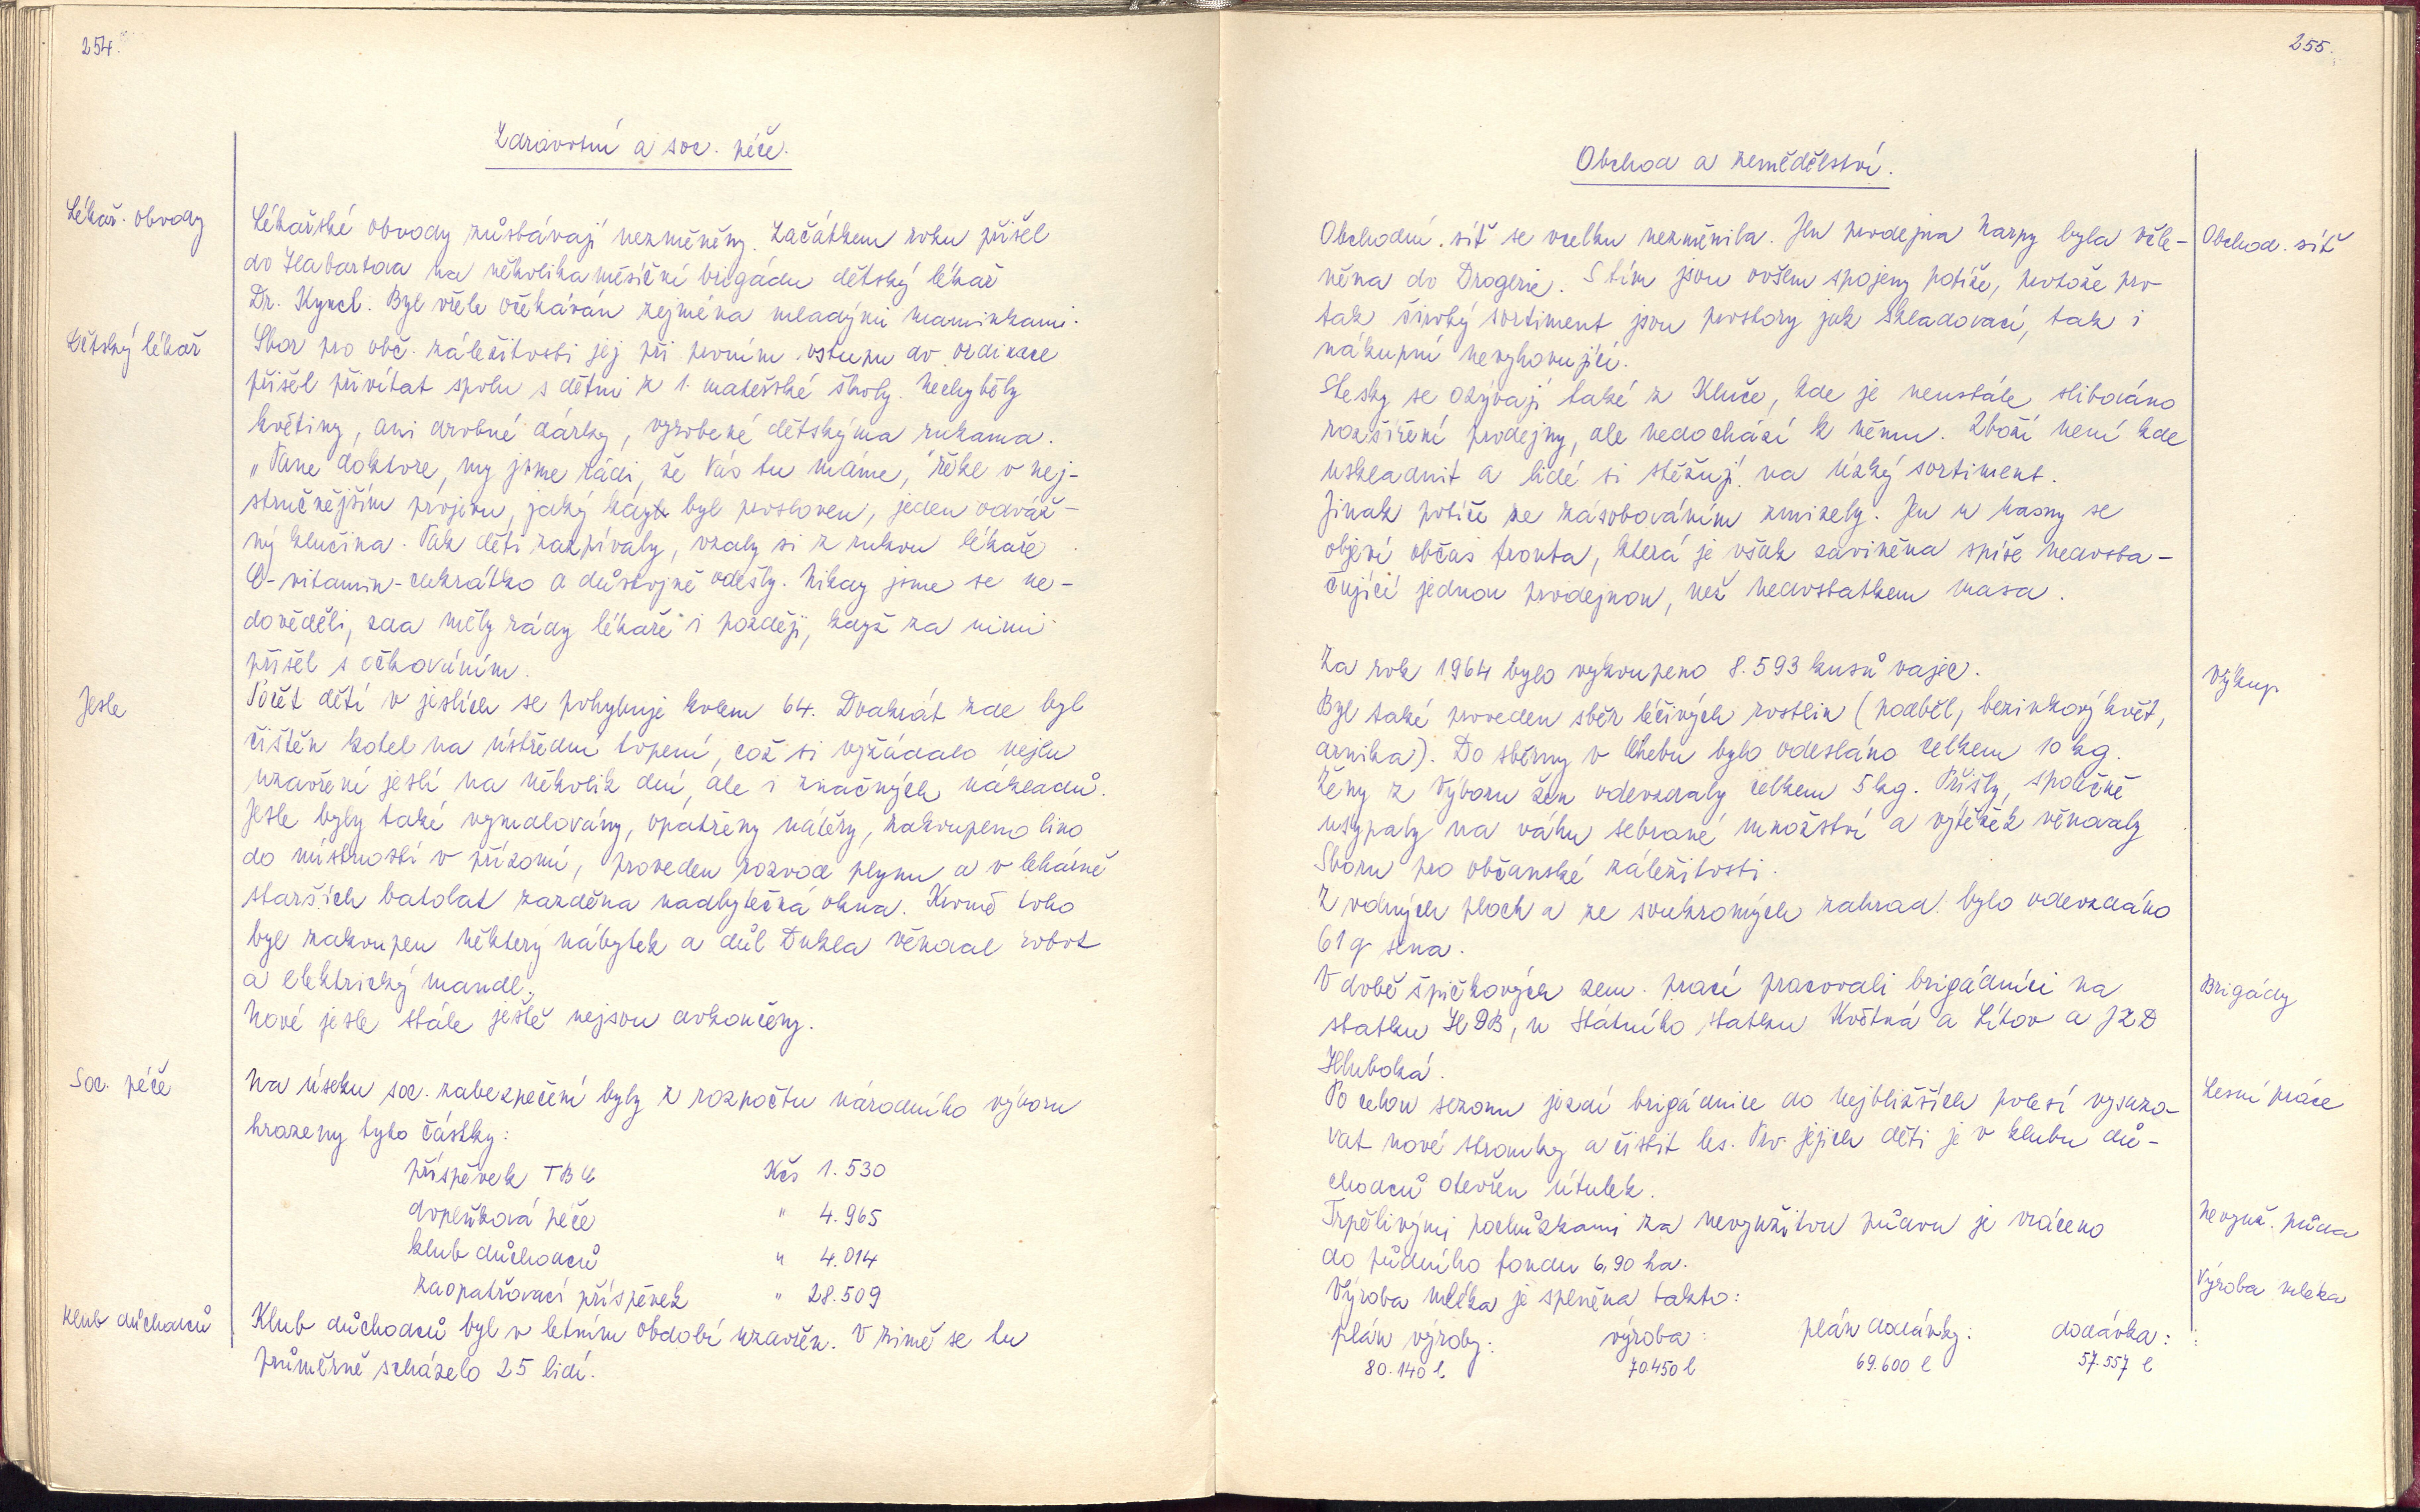 254.
Zdravotní a soc. péče.
Lékař. obvody
Lékařské obvody zůstávají nezměněny. Začátkem roku přišel
do Habartova na několika měsíční brigádu dětský lékař
Dr. Kyncl. Byl vřele očekáván zejména mladými maminkami.
Dětský lékař
Sbor pro obč. záležitosti jej při prvním vstupu do ordinace
přišel přivítat spolu s dětmi z 1. mateřské školy. Nechyběly
květiny, ani drobné dárky, vyrobené dětskýma rukama.
„Pane doktore, my jsme rádi, že Vás tu máme," řekl v nej-
stručnějším projevu, jaký kdy byl prosloven, jeden odváž-
ný klučina. Pak děti zazpívaly, vzaly si z rukou lékaře
C-vitamin-cukrátko a důstojně odešly. Nikdy jsme se ne-
dověděli, zda měly rády lékaře i později, když za nimi
přišel s očkováním.
Jesle
Počet dětí v jeslích se pohybuje kolem 64. Dvakrát zde byl
čištěn kotel na ústřední topení, což si vyžádalo nejen
uzavření jeslí na několik dní, ale i značných nákladů.
Jesle byly také vymalovány, opatřeny nátěry, zakoupeno lino
do místností v přízemí, proveden rozvod plynu a v lehárně
starších batolat zazděna nadbytečná okna. Kromě toho
byl zakoupen některý nábytek a důl Dukla věnoval robot
a elektrický mandl.
Nové jesle stále ještě nejsou dokončeny.
Soc. péče
Na úseku soc. zabezpečení byly z rozpočtu národního výboru
hrazeny tyto částky:
příspěvek TBC Kčs 1.530
doplňková péče " 4.965
klub důchodců " 4.014
zaopatřovací příspěvek " 28.509
Klub důchodců
Klub důchodců byl v letním období uzavřen. V zimě se tu
průměrně scházelo 25 lidí.
255.
Obchod a zemědělství.
Obchodní síť se vcelku nezměnila. Jen prodejna barvy byla včle-
Obchod. síť
něna do Drogerie. S tím jsou ovšem spojeny potíže, protože pro
tak široký sortiment jsou prostory jak skladovací, tak i
nákupní nevyhovující.
Stesky se ozývají také z Kluče, kde je neustále slibováno
rozšíření prodejny, ale nedochází k němu. Zboží není kde
uskladnit a lidé si stěžují na úzký sortiment.
Jinak potíže ze zásobováním zmizely. Jen u masny se
objeví občas fronta, která je však zaviněna spíše nedosta-
čující jednou prodejnou, než nedostatkem masa.
Za rok 1964 bylo vykoupeno 8.593 kusů vajec.
Výkup
Byl také proveden sběr léčivých rostlin (podběl, bezinkový květ,
arnika). Do sběrny v Chebu bylo odesláno celkem 10 kg.
Ženy z Výboru žen odevzdaly celkem 5 kg. Přišly, společně
usypaly na váhu sebrané množství a výtěžek věnovaly
Sboru pro občanské záležitosti.
Z volných ploch a ze soukromých zahrad bylo odevzdáno
61 q sena.
V době špičkových zem. prací pracovali brigádníci na
Brigády
statku HDB, u Státního statku Květná a Lítov a JZD
Hluboká.
Po celou sezonu jezdí brigádnice do nejbližších polesí vysazo-
Lesní práce
vat nové stromky a čistit les. Pro jejich děti je v klubu dů-
chodců otevřen útulek.
Trpělivými pochůzkami za nevyužitou půdou je vráceno
Nevyuž. půda
do půdního fondu 6,90 ha.
Výroba mléka je splněna takto:
Výroba mléka
plán výroby: výroba: plán dodávky: dodávka:
80.140 l 70.450 l 69.600 l 57.557 l